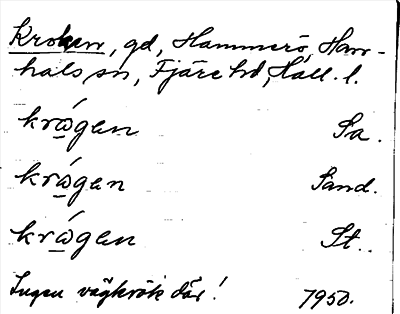 Kroken, gd, Hammerö, Harr-
hals sn, Fjäre hd, Hall. l.
krώgen Sa.
krώgen Sand.
krώgen St.
Ingen vägkrök där! 1950.